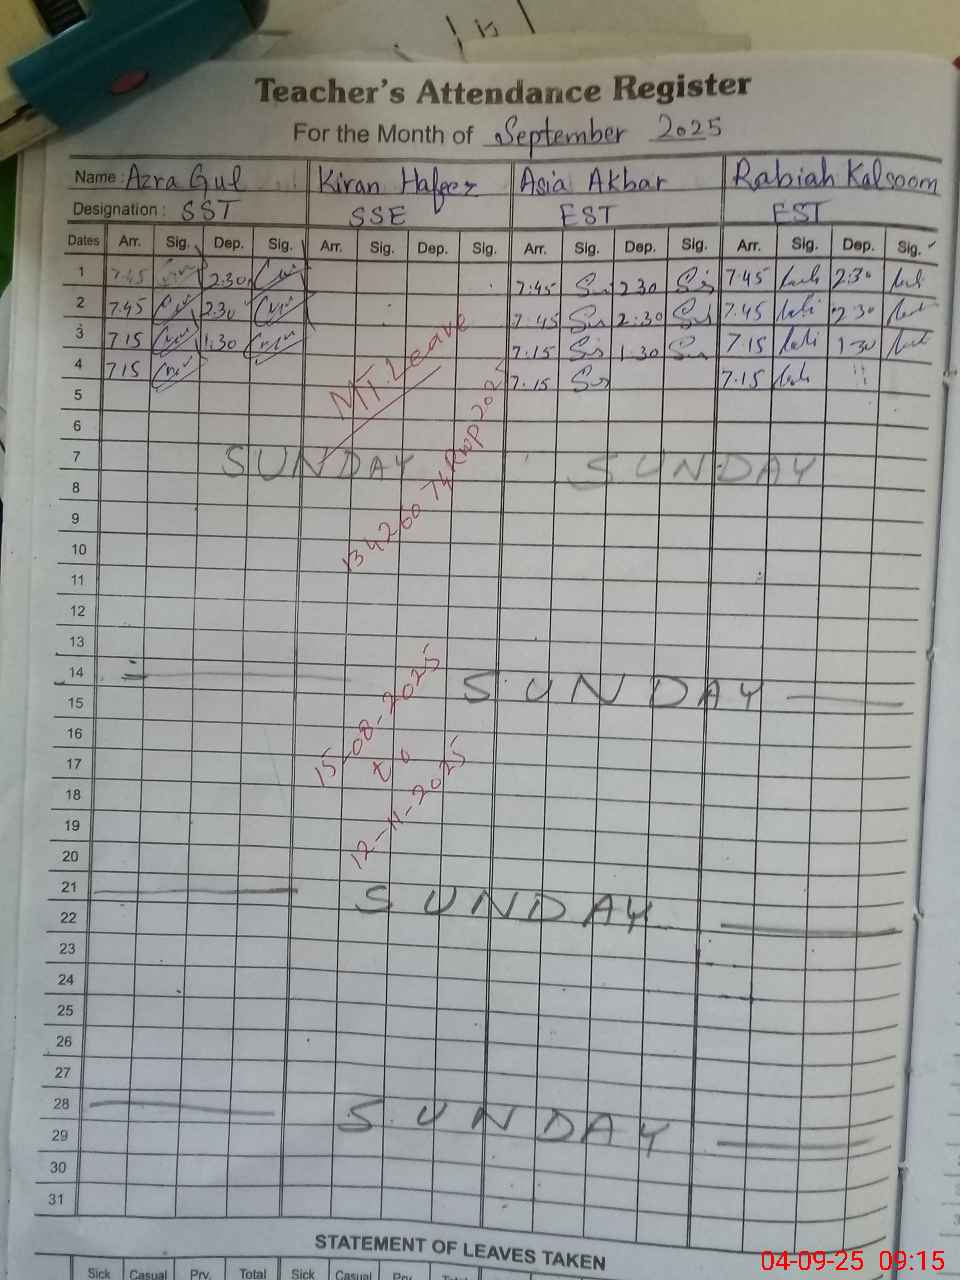 Teacher's Attendance Register
For the Month of September 2025
Name : Azra Gul Kiran Hafeez Asia Akbar Rabiah Kalsoom
Designation : SST SSE EST EST
Dates Arr. Sig. Dep. Sig. Arr. Sig. Dep. Sig. Arr. Sig. Dep. Sig. Arr. Sig. Dep. Sig.
1 7.45 2.30 7:45 2 30 7.45 2.30
2 7.45 2.30 7.45 2:30 7.45 2.30
3 7.15 1.30 7.15 1.30 7.15 1.30
4 7.15 7.15 7.15
MT. Leave
5
6
7 SUNDAY SUNDAY
8
9
10
11
12
13
14 SUNDAY
15
15-08-2025
to
12-11-2025
16
17
18
19
20
21 SUNDAY
22
23
24
25
26
27
28 SUNDAY
29
30
31
STATEMENT OF LEAVES TAKEN
Sick Casual Prv. Total Sick Casual Prv.
04-09-25 09:15